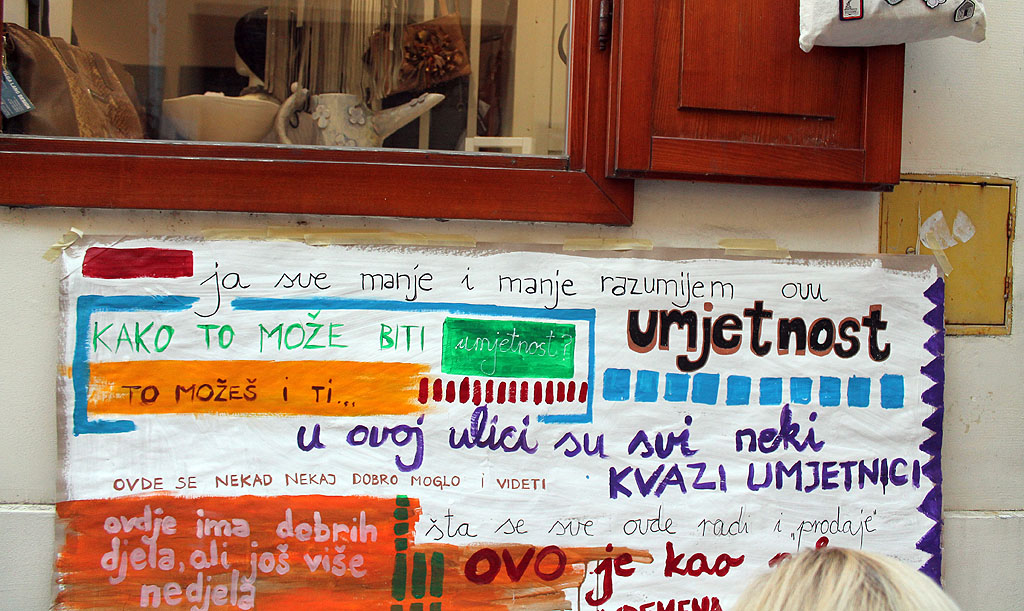 ja sve manje i manje razumijem ovu
umjetnost
KAKO TO MOŽE BITI umjetnost?
TO MOŽEŠ I TI...
u ovoj ulici su svi neki
KVAZI UMJETNICI
OVDE SE NEKAD NEKAJ DOBRO MOGLO I VIDETI
ovdje ima dobrih
djela, ali još više
nedjela
šta se sve ovde radi i „prodaje"
OVO je kao